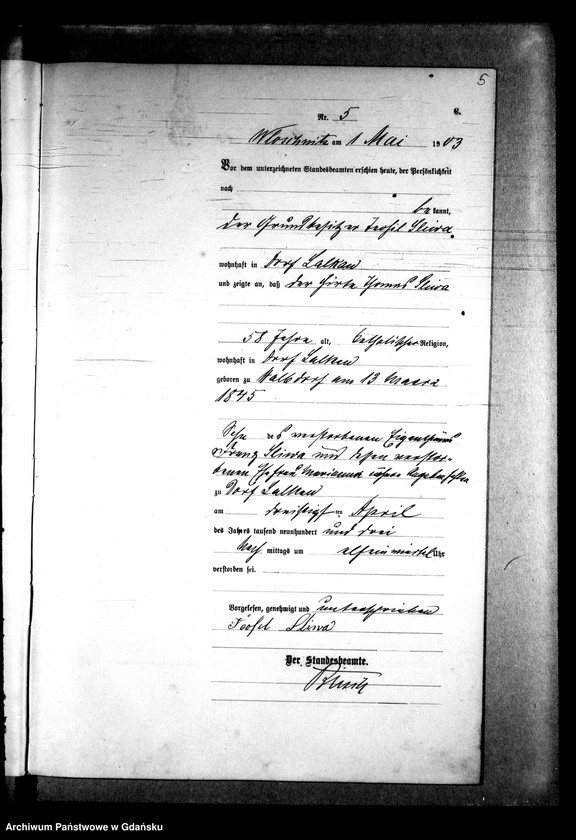 5
Nr. 5 C.
am 1 Mai 1903
Vor dem unterzeichneten Standesbeamten erschien heute, der Persönlichkeit
nach
bekannt,
der Grundbesitzer Teofil Sliwa
wohnhaft in Dorf Lalkau
und zeigte an, daß der Hirte Thomas Sliwa
58 Jahre alt, katholischer Religion,
wohnhaft in Dorf Lalkau
geboren zu am 13
1845
Sohn des verstorbenen Eigenthümers
Franz Sliwa und dessen verstor-
benen Ehefrau Marianna
zu Dorf Lalkau
am dreißigsten April
des Jahres tausend neunhundert und drei
Nachmittags um elfeinviertel Uhr
verstorben sei.
Vorgelesen, genehmigt und unterschrieben
Teofil Sliwa
Der Standesbeamte.
Archiwum Państwowe w Gdańsku